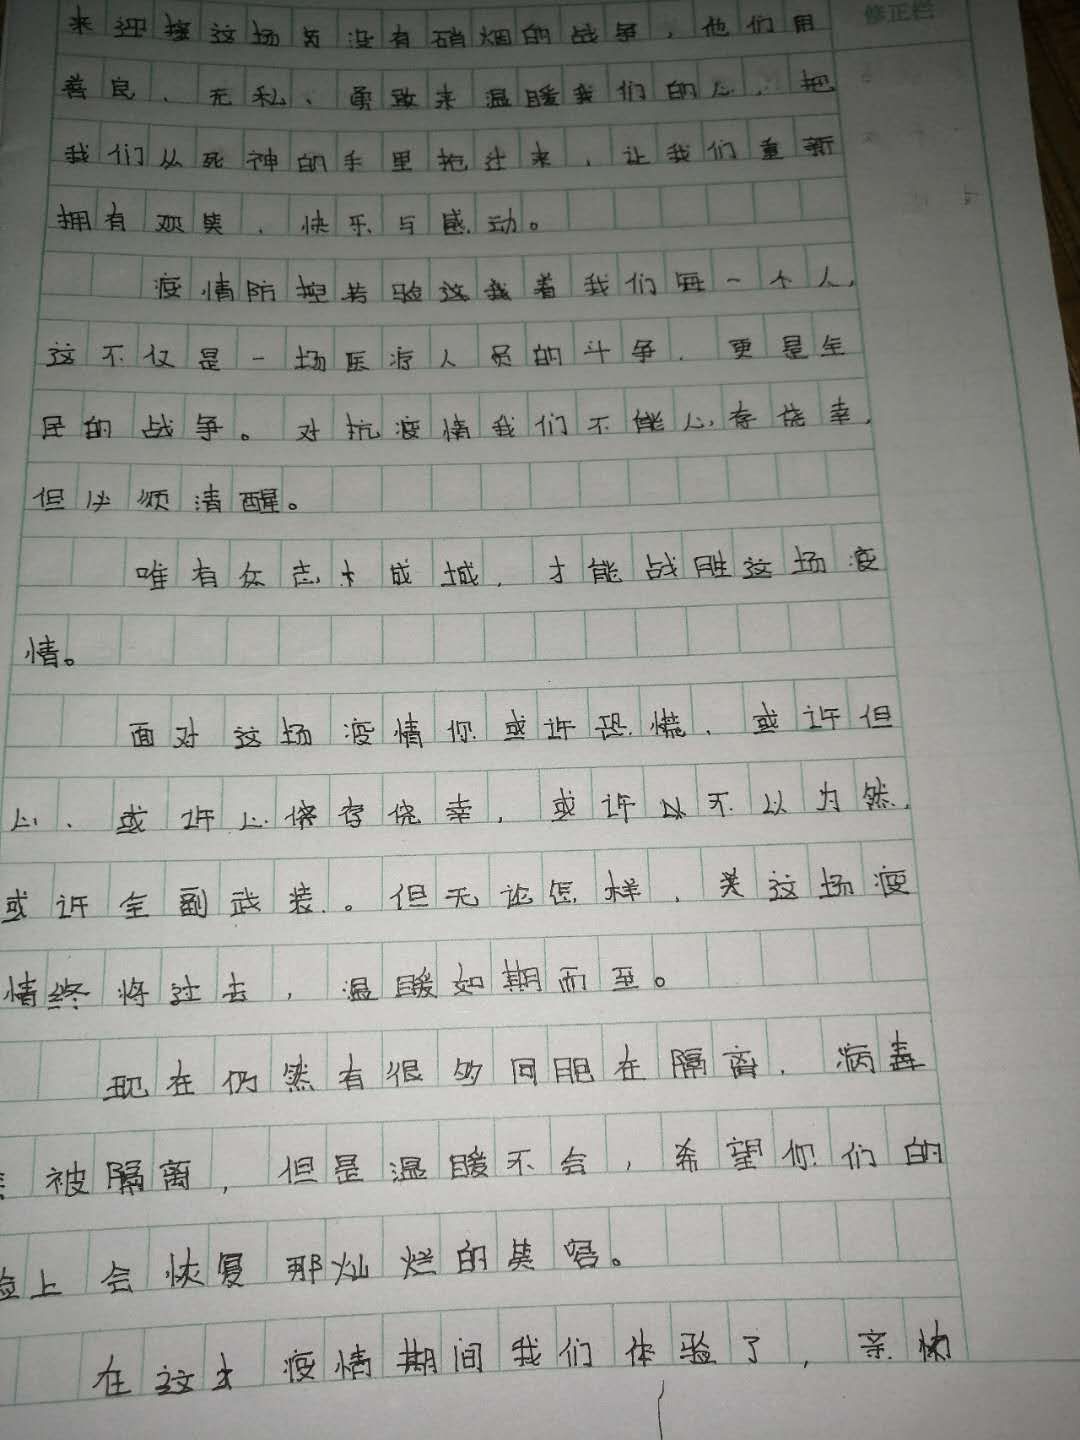 修正栏
来迎接这场为没有硝烟的战争，他们用
善良、无私、勇敢来温暖我们的心，把
我们从死神的手里抢过来，让我们重新
拥有欢笑、快乐与感动。
疫情防控考验这我着我们每一个人，
这不仅是一场医疗人员的斗争，更是全
民的战争。对抗疫情我们不能心存侥幸，
但必须清醒。
唯有众志才成城，才能战胜这场疫
情。
面对这场疫情你或许恐慌，或许但
心、或许心侥存侥幸，或许以不以为然，
或许全副武装。但无论怎样，关这场疫
情终将过去，温暖如期而至。
现在仍然有很多同胞在隔离，病毒
被隔离，但是温暖不会，希望你们的
脸上会恢复那灿烂的笑容。
在这才疫情期间我们体验了，亲